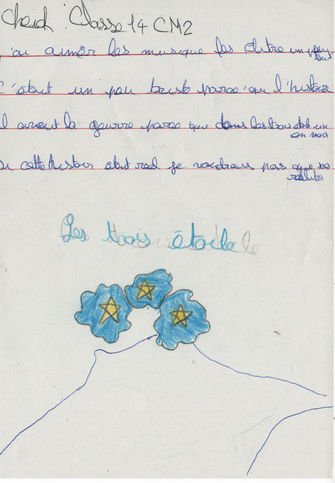 Cheid Classe 14 CM2
'ai aimer les musique les chtre un peu tout
C'était un peu triste parce que l'histoire
il avait la geurre parce que dans les
si cette histoir était reel je voudrais pas que sa
Les trois étoile